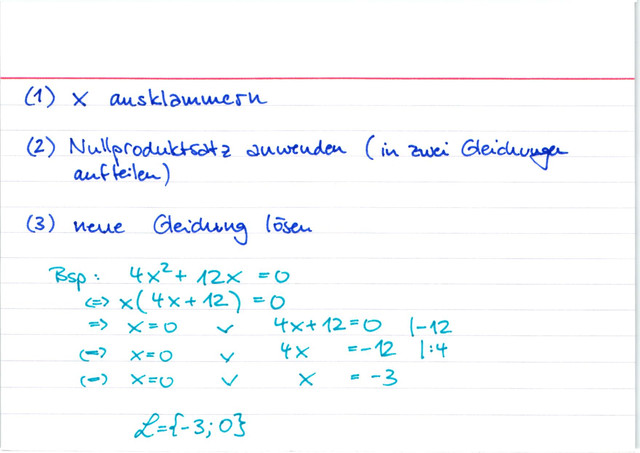 (1) x ausklammern
(2) Nullproduktsatz anwenden (in zwei Gleichungen
aufteilen)
(3) neue Gleichung lösen
Bsp: 4x² + 12x = 0
<=> x(4x + 12) = 0
=> x = 0 ∨ 4x + 12 = 0 |-12
<=> x = 0 ∨ 4x = -12 |:4
<=> x = 0 ∨ x = -3
L = {-3; 0}